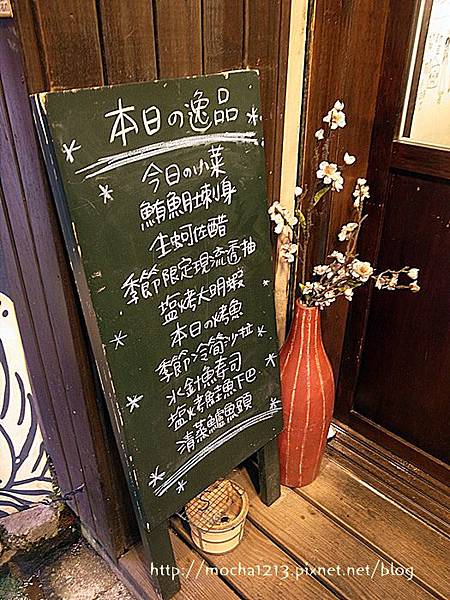 本日の逸品
今日の小菜
鮪魚肚刺身
生蚵佐醋
季節限定現流透抽
塩烤大明蝦
本日の烤魚
季節冷筍沙拉
水針魚壽司
塩烤鮭魚下巴
清蒸鱸魚頭
http://mocha1213.pixnet.net/blog